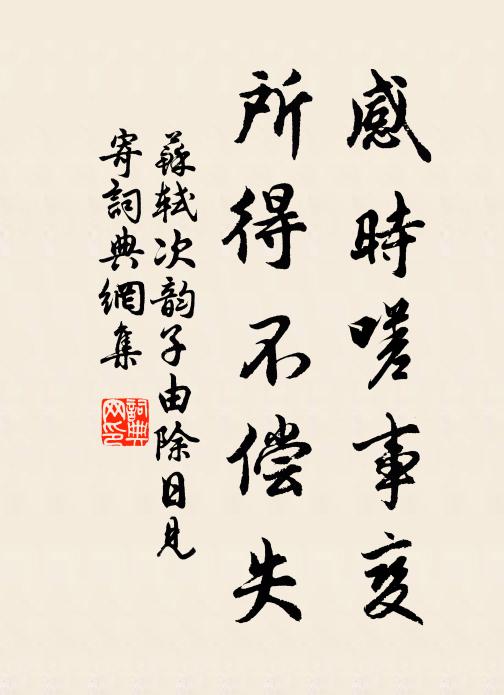 感時嗟事变
所得不偿失
蘇軾次韵子由除日見
寄詞典網集
詞典
网印